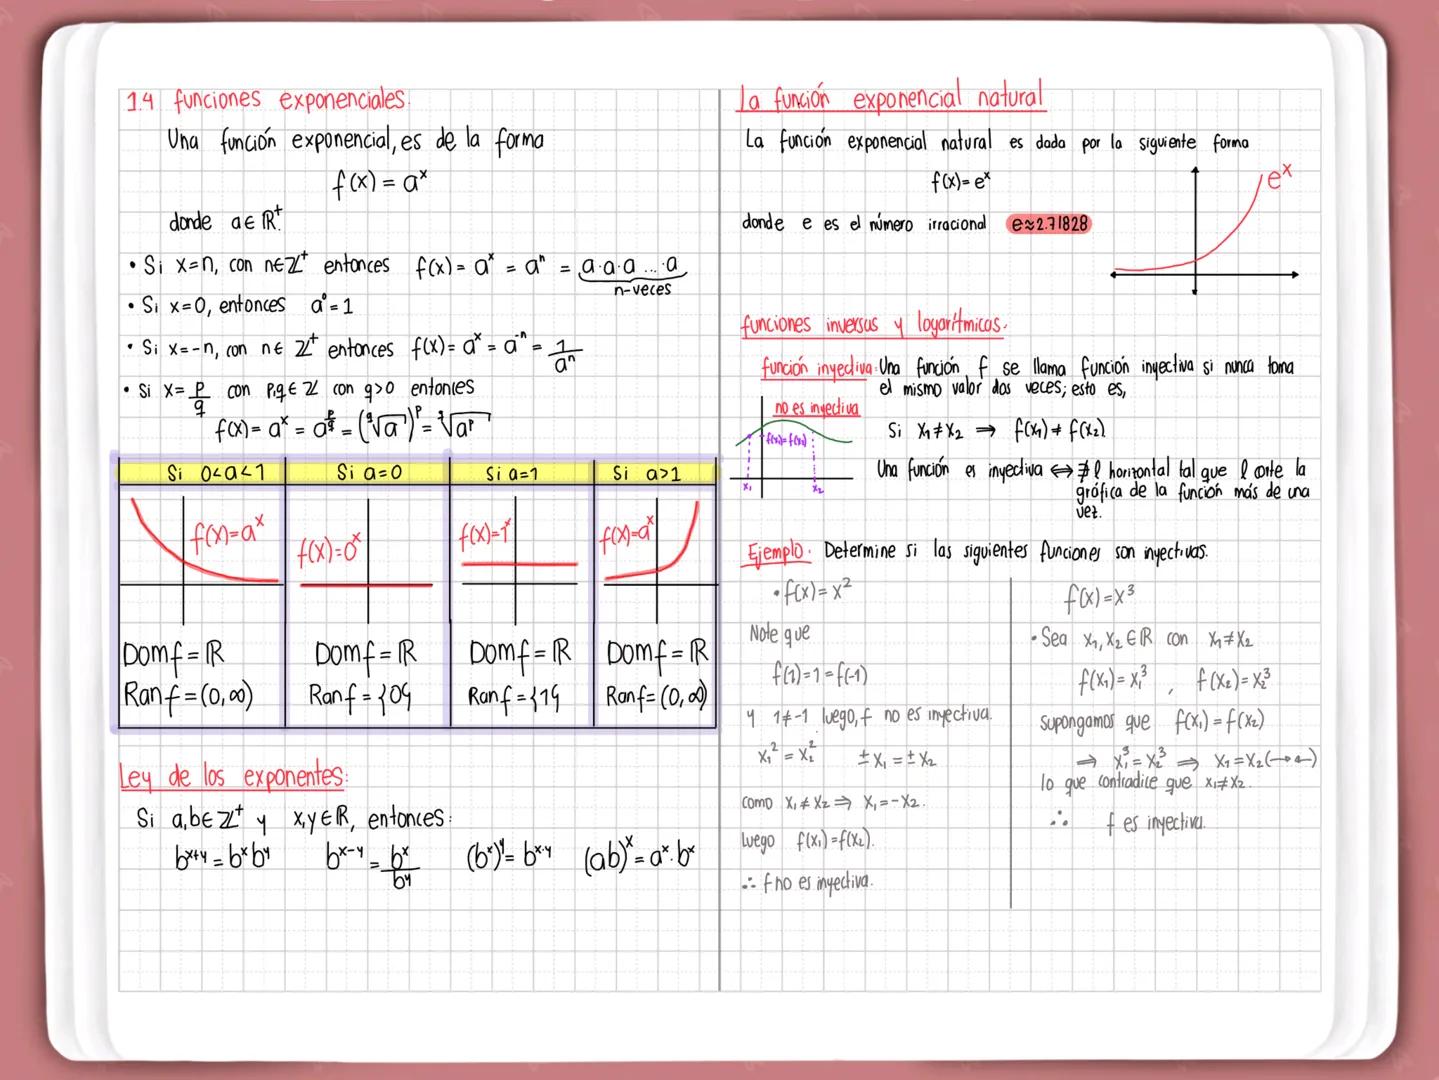 1.4 funciones exponenciales.
Una función exponencial, es de la forma
f(x) = a^x
donde a ∈ ℝ⁺.
• Si x=n, con n∈ℤ⁺ entonces f(x) = a^x = a^n = a·a·a ... ·a
n-veces
• Si x=0, entonces a^0 = 1
• Si x=-n, con n∈ ℤ⁺ entonces f(x) = a^x = a^-n = 1/a^n
• Si x = p/q con p,q ∈ ℤ con q>0 entonces
f(x) = a^x = a^(p/q) = (^q√a)^p = ^q√a^p
Si 0<a<1 Si a=0 Si a=1 Si a>1
f(x)=a^x f(x)=0^x f(x)=1^x f(x)=a^x
Dom f = ℝ Dom f = ℝ Dom f = ℝ Dom f = ℝ
Ran f = (0,∞) Ran f = {0} Ran f = {1} Ran f = (0,∞)
Ley de los exponentes:
Si a,b∈ ℤ⁺ y x,y∈ℝ, entonces:
b^(x+y) = b^x b^y b^(x-y) = b^x/b^y (b^x)^y = b^(x·y) (ab)^x = a^x · b^x
La función exponencial natural
La función exponencial natural es dada por la siguiente forma
f(x) = e^x
e^x
donde e es el número irracional e≈2.71828
funciones inversas y logarítmicas.
función inyectiva: Una función f se llama función inyectiva si nunca toma
el mismo valor dos veces; esto es,
no es inyectiva
f(x₁)=f(x₂)
x₁ x₂
Si x₁≠x₂ ⇒ f(x₁) ≠ f(x₂)
Una función es inyectiva ⇔ ∄ l horizontal tal que l corte la
gráfica de la función más de una
vez.
Ejemplo. Determine si las siguientes funciones son inyectivas.
• f(x) = x²
Note que
f(1)=1=f(-1)
y 1≠-1 luego, f no es inyectiva.
x₁² = x₂² ±x₁ = ±x₂
como x₁ ≠ x₂ ⇒ x₁ = -x₂.
luego f(x₁) = f(x₂).
∴ f no es inyectiva.
f(x) = x³
• Sea x₁, x₂ ∈ ℝ con x₁≠x₂
f(x₁) = x₁³ , f(x₂) = x₂³
supongamos que f(x₁) = f(x₂)
⇒ x₁³ = x₂³ ⇒ x₁ = x₂ (→←)
lo que contradice que x₁≠x₂.
∴ f es inyectiva.